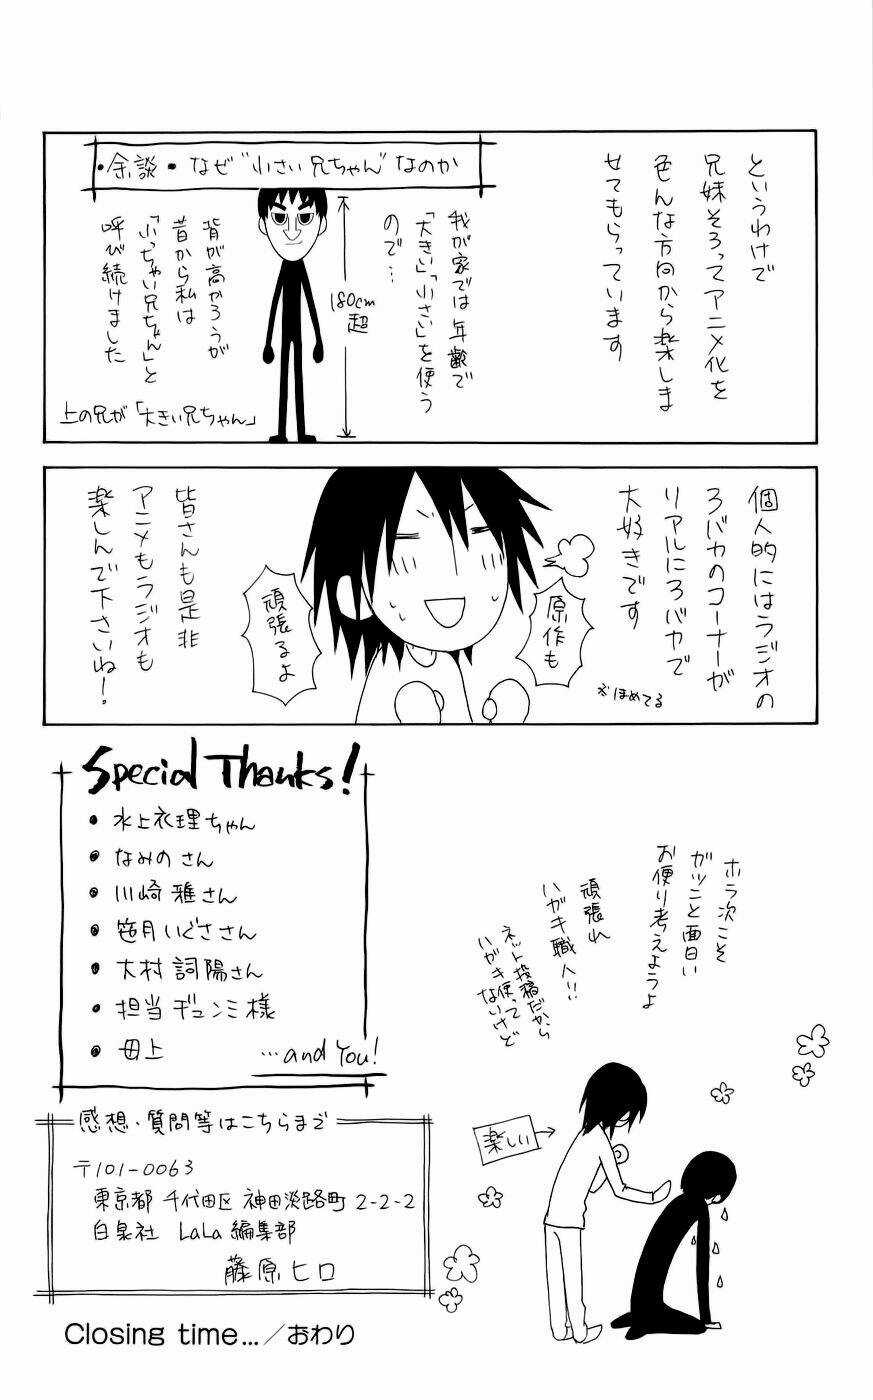 というわけで
兄妹そろってアニメ化を
色んな方向から楽しま
せてもらっています
・余談・なぜ“小さい兄ちゃん”なのか
我が家では年齢で
「大きい」「小さい」を使う
ので…
180cm
超
背が高かろうが
昔から私は
「小っちゃい兄ちゃん」と
呼び続けました
上の兄が「大きい兄ちゃん」
個人的にはラジオの
3バカのコーナーが
リアルに3バカで
大好きです
※ほめてる
原作も
頑張るよ
皆さんも是非
アニメもラジオも
楽しんで下さいね！
Special Thanks!
・水上衣理ちゃん
・なみのさん
・川崎雅さん
・笹月いぐささん
・大村詞陽さん
・担当ヂュンミ様
・母上
…and You!
ホラ次こそ
ガツンと面白い
お便り考えようよ
頑張れ
ハガキ職人!!
ネット投稿だから
ハガキ使って
ないけど
楽しい
感想・質問等はこちらまで
〒101-0063
東京都 千代田区 神田淡路町 2-2-2
白泉社 LaLa編集部
藤原ヒロ
Closing time…／おわり